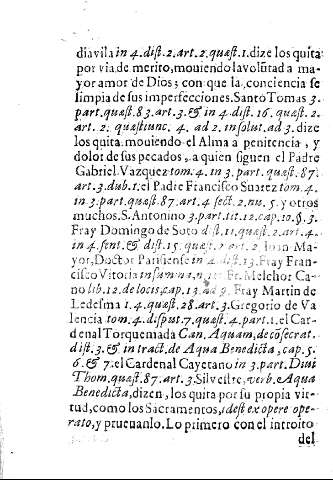 diavila in 4. dist. 2. art. 2. quæst. 1. dize los quita
por via de merito, mouiendo la volũtad a ma-
yor amor de Dios; con que la conciencia se
limpia de sus imperfecciones. Santo Tomas 3.
part. quæst. 83. art. 3. & in 4. dist. 16. quæst. 2.
art. 2. quæstiunc. 4. ad 2. in solut. ad 3. dize
los quita mouiendo el Alma a penitencia, y
dolor de sus pecados, a quien siguen el Padre
Gabriel Vazquez tom. 4. in 3. part. quæst. 87.
art. 3. dub. 1. el Padre Francisco Suarez tom. 4.
in 3. part. quæst. 87. art. 4 sect. 2. nu. 5. y otros
muchos. S. Antonino 3. part. tit. 12. cap. 10. §. 3.
Fray Domingo de Soto dist. 11. quæst. 2. art. 4.
in 4. sent. & dist. 15. quæst. 2. art. 2. Iuan Ma-
yor, Doctor Parisiense in 4. dist. 13. Fray Fran-
cisco Vitoria in summa, n. Fr. Melchor Ca-
no lib. 12. de locis, cap. 13. ad 9. Fray Martin de
Ledesma 1. 4. quæst. 28. art. 3. Gregorio de Va
lencia tom. 4. disput. 7. quæst. 4. part. 1. el Car-
denal Torquemada Can. Aquam, de cõsecrat.
dist. 3. & in tract. de Aqua Benedicta, cap. 5.
6. & 7. el Cardenal Cayetano in 3. part. Diui
Thom. quæst. 87. art. 3. Silvestre, verb. Aqua
Benedicta, dizen, los quita por su propia vir-
tud, como los Sacramentos, idest ex opere ope-
rato, y prueuanlo. Lo primero con el introito
del